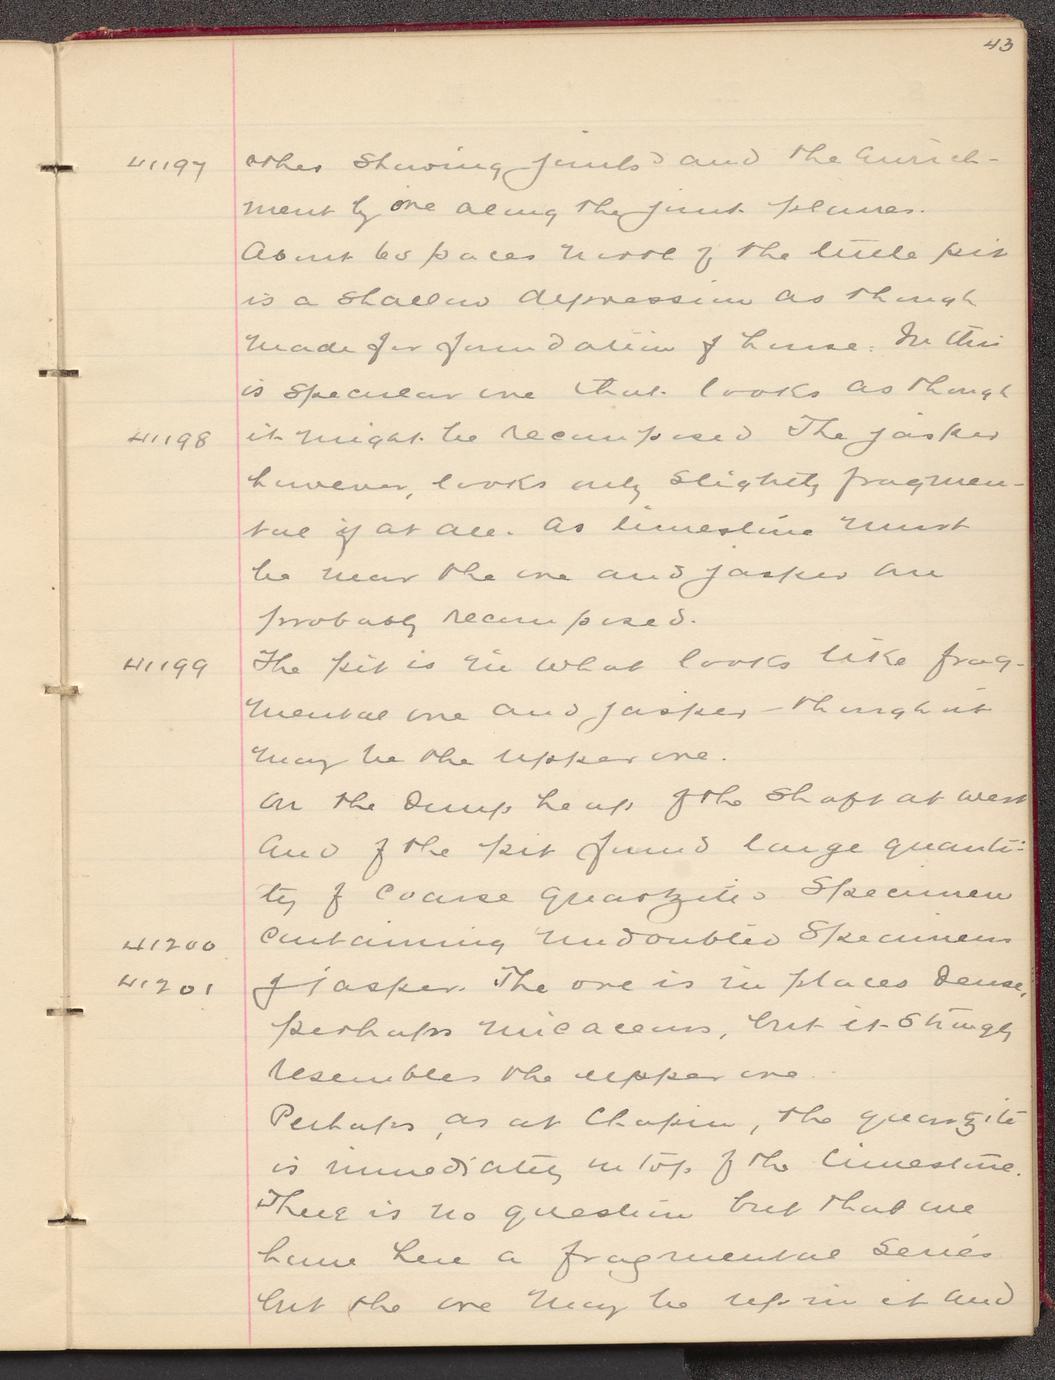 43
41197 other showing joints and the enrich-
ment by ore along the joint planes.
About 60 paces north of the little pit
is a shallow depression as though
made for foundation of house. In this
is specular ore that looks as though
41198 it might be recomposed The jasper
however, looks only slightly fragmen-
tal if at all. As limestone must
be near the ore and jasper are
probably recomposed.
41199 The pit is in what looks like frag-
mental ore and jasper - though it
may be the upper ore.
On the dump heap of the shaft at west
end of the pit found large quanti-
ty of coarse quartzite Specimen
41200 containing undoubted specimens
41201 of jasper. The ore is in places dense,
perhaps micaceous, but it strongly
resembles the upper ore.
Perhaps, as at Chapin, the quartzite
is immediately on top of the limestone.
There is no question but that we
have here a fragmental series
but the ore may be up in it and